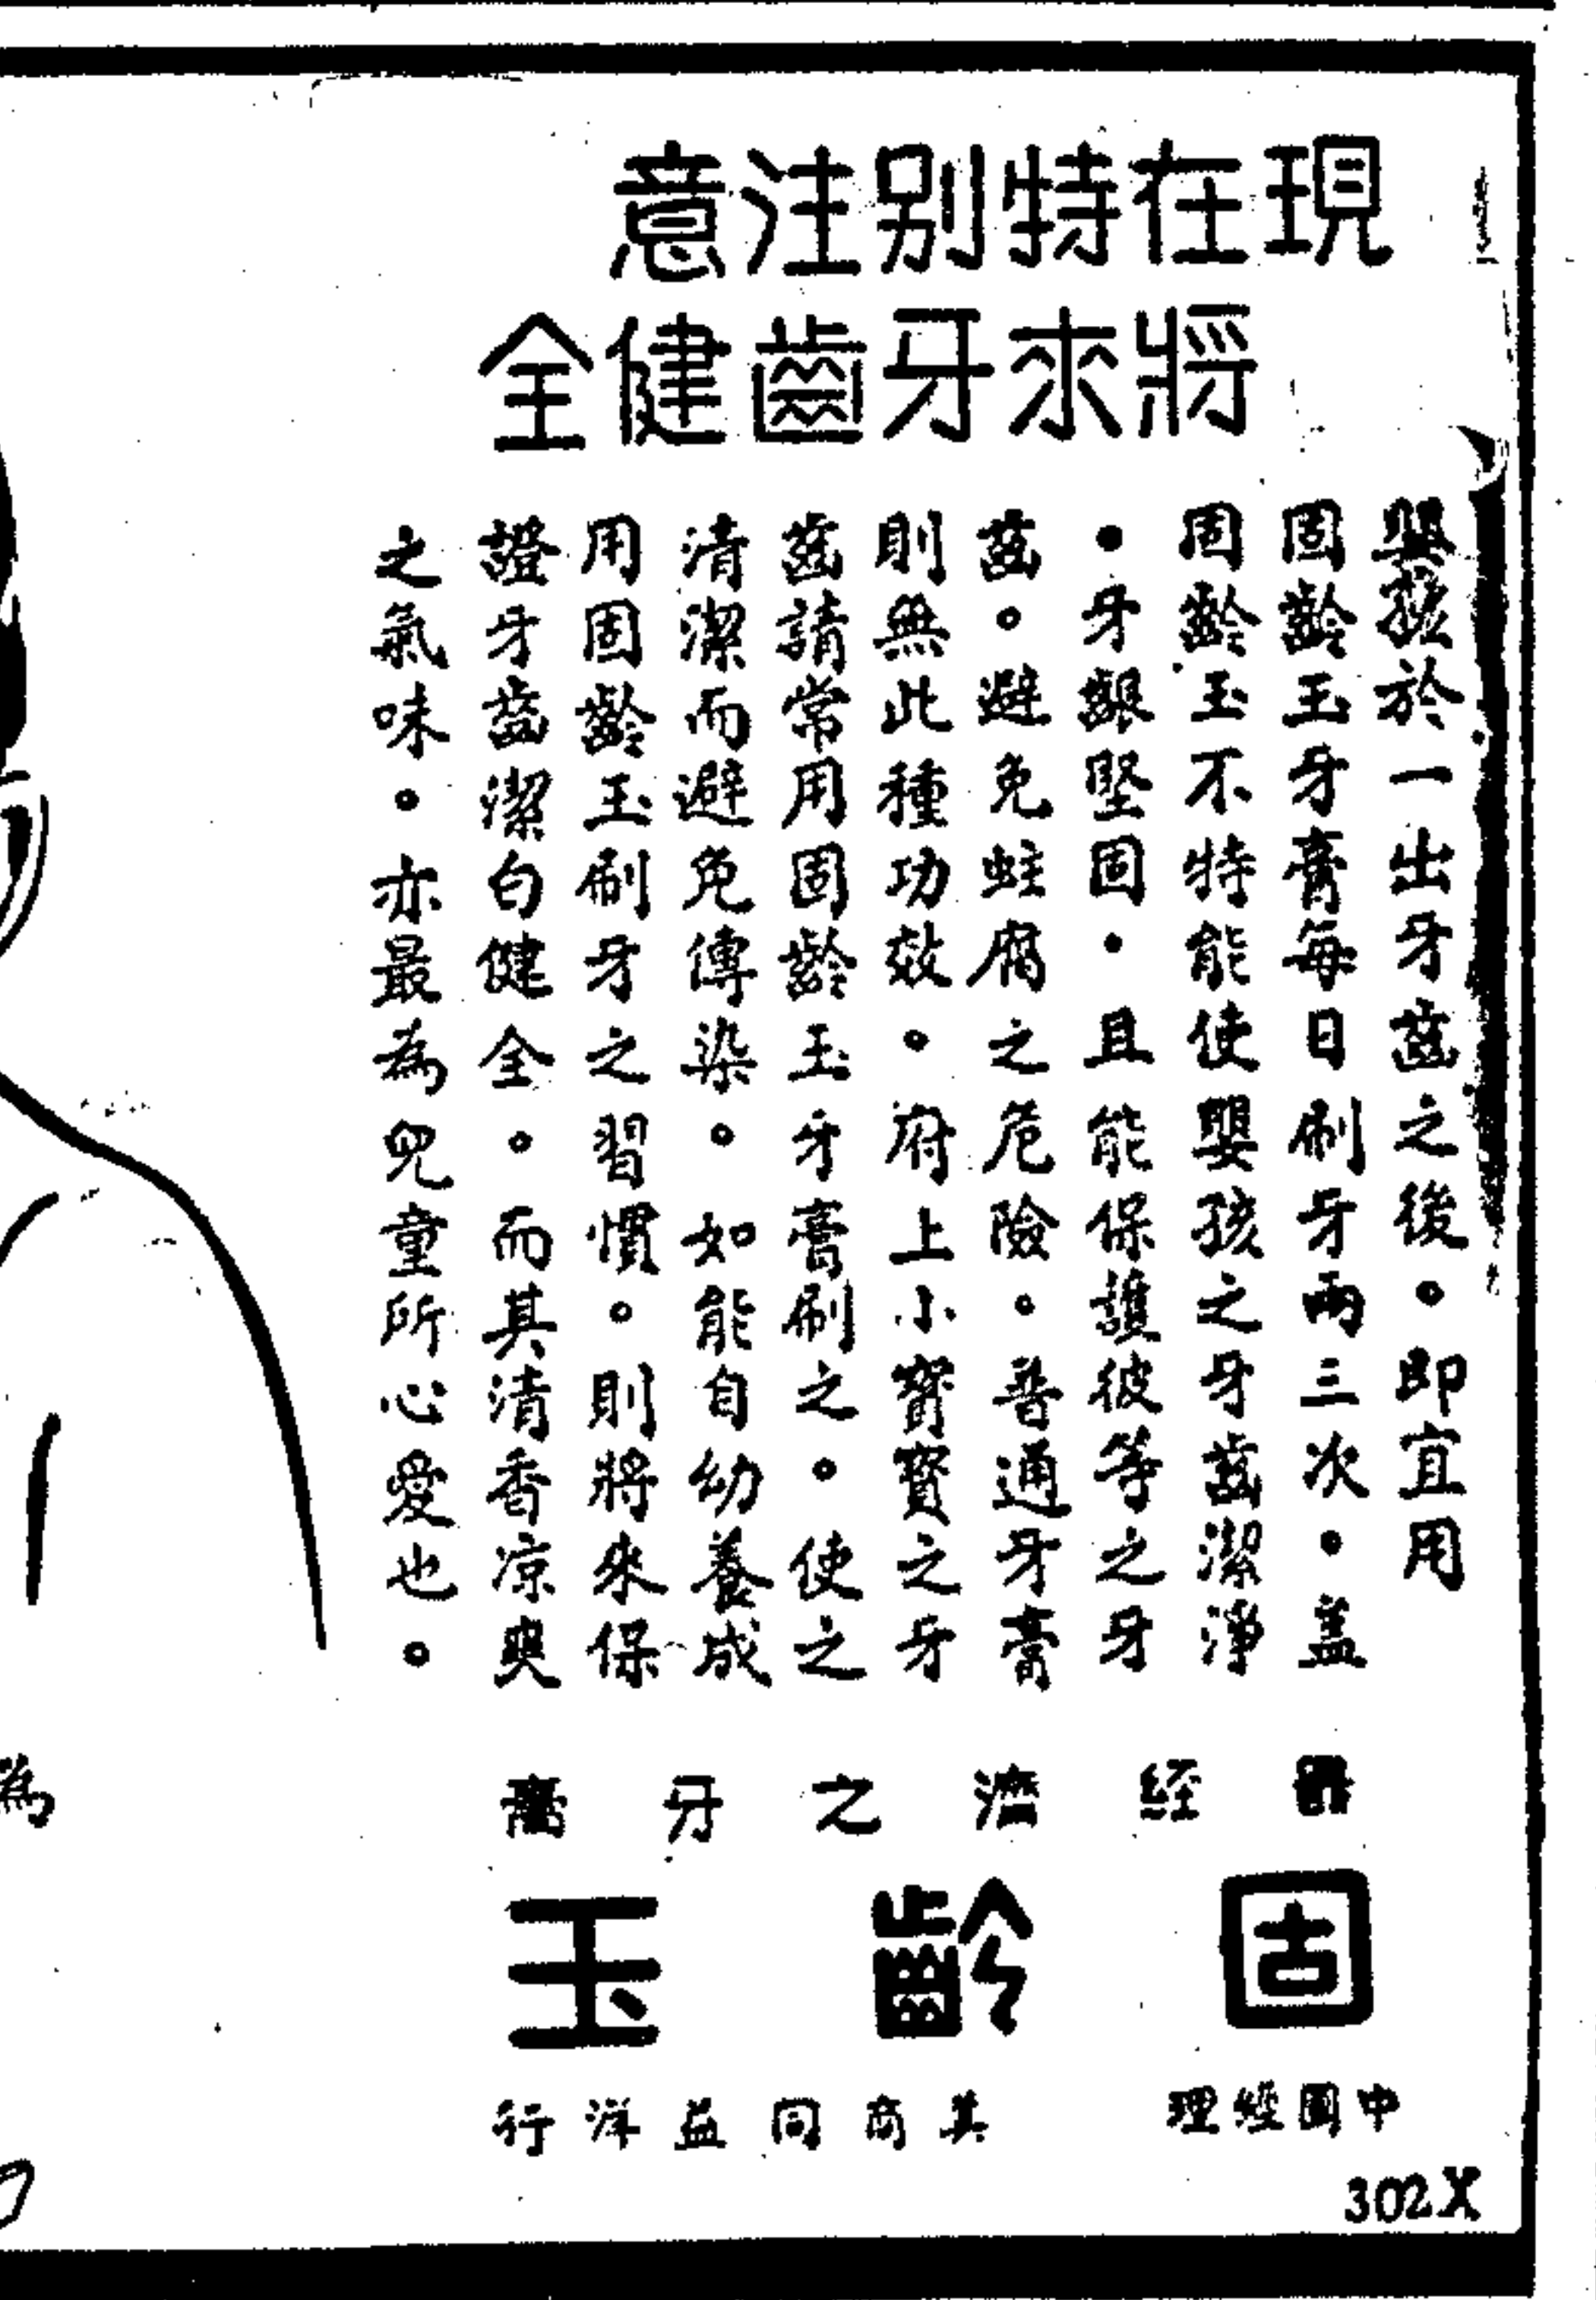 現在特別注意
將來牙齒健全
嬰孩於一出牙齒之後。即宜用
固齡玉牙膏每日刷牙兩三次。蓋
固齡玉不特能使嬰孩之牙齒潔淨
。牙齦堅固。且能保護彼等之牙
齒。避免蛀腐之危險。普通牙膏
則無此種功效。府上小寶寶之牙
齒請常用固齡玉牙膏刷之。使之
清潔而避免傳染。如能自幼養成
用固齡玉刷牙之習慣。則將來保
證牙齒潔白健全。而其清香凉爽
之氣味。亦最為兒童所心愛也。
為
經濟之牙膏
固齡玉
中國經理
商同益洋行
302X